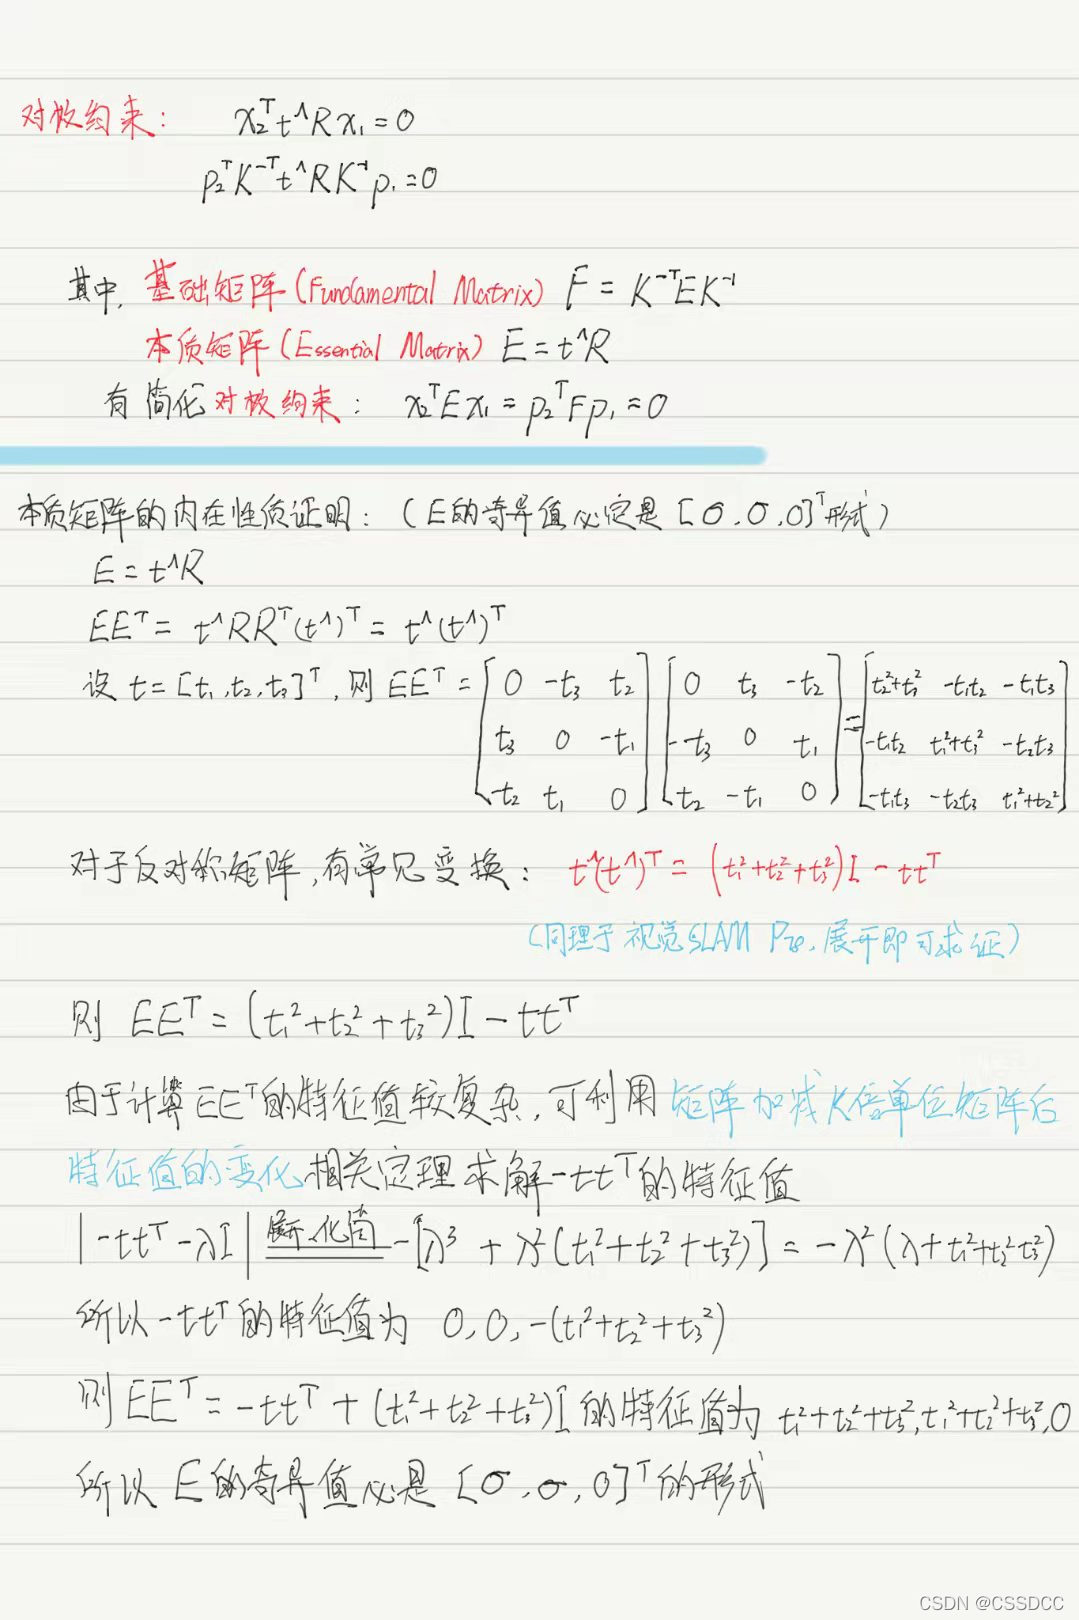 对极约束： x₂ᵀt^Rx₁=0
p₂ᵀK⁻ᵀt^RK⁻¹p₁=0
其中, 基础矩阵(Fundamental Matrix) F=K⁻ᵀEK⁻¹
本质矩阵(Essential Matrix) E=t^R
有简化对极约束： x₂ᵀEx₁=p₂ᵀFp₁=0
本质矩阵的内在性质证明：（E的奇异值必定是[σ,σ,0]ᵀ形式）
E=t^R
EEᵀ= t^RRᵀ(t^)ᵀ= t^(t^)ᵀ
设 t=[t₁,t₂,t₃]ᵀ, 则 EEᵀ=[0 -t₃ t₂; t₃ 0 -t₁; -t₂ t₁ 0][0 t₃ -t₂; -t₃ 0 t₁; t₂ -t₁ 0]=[t₂²+t₃² -t₁t₂ -t₁t₃; -t₁t₂ t₁²+t₃² -t₂t₃; -t₁t₃ -t₂t₃ t₁²+t₂²]
对于反对称矩阵,有常见变换： t^(t^)ᵀ=(t₁²+t₂²+t₃²)I-ttᵀ
（同理于视觉SLAM P78,展开即可求证）
则 EEᵀ=(t₁²+t₂²+t₃²)I-ttᵀ
由于计算EEᵀ的特征值较复杂,可利用矩阵加减K倍单位矩阵后
特征值的变化相关定理求解-ttᵀ的特征值
|-ttᵀ-λI| 展开、化简 -[λ³+λ²(t₁²+t₂²+t₃²)]=-λ²(λ+t₁²+t₂²t₃²)
所以-ttᵀ的特征值为 0,0,-(t₁²+t₂²+t₃²)
则EEᵀ=-ttᵀ+(t₁²+t₂²+t₃²)I的特征值为 t₁²+t₂²+t₃²,t₁²+t₂²+t₃²,0
所以E的奇异值必是[σ,σ,0]ᵀ的形式
CSDN @CSSDCC